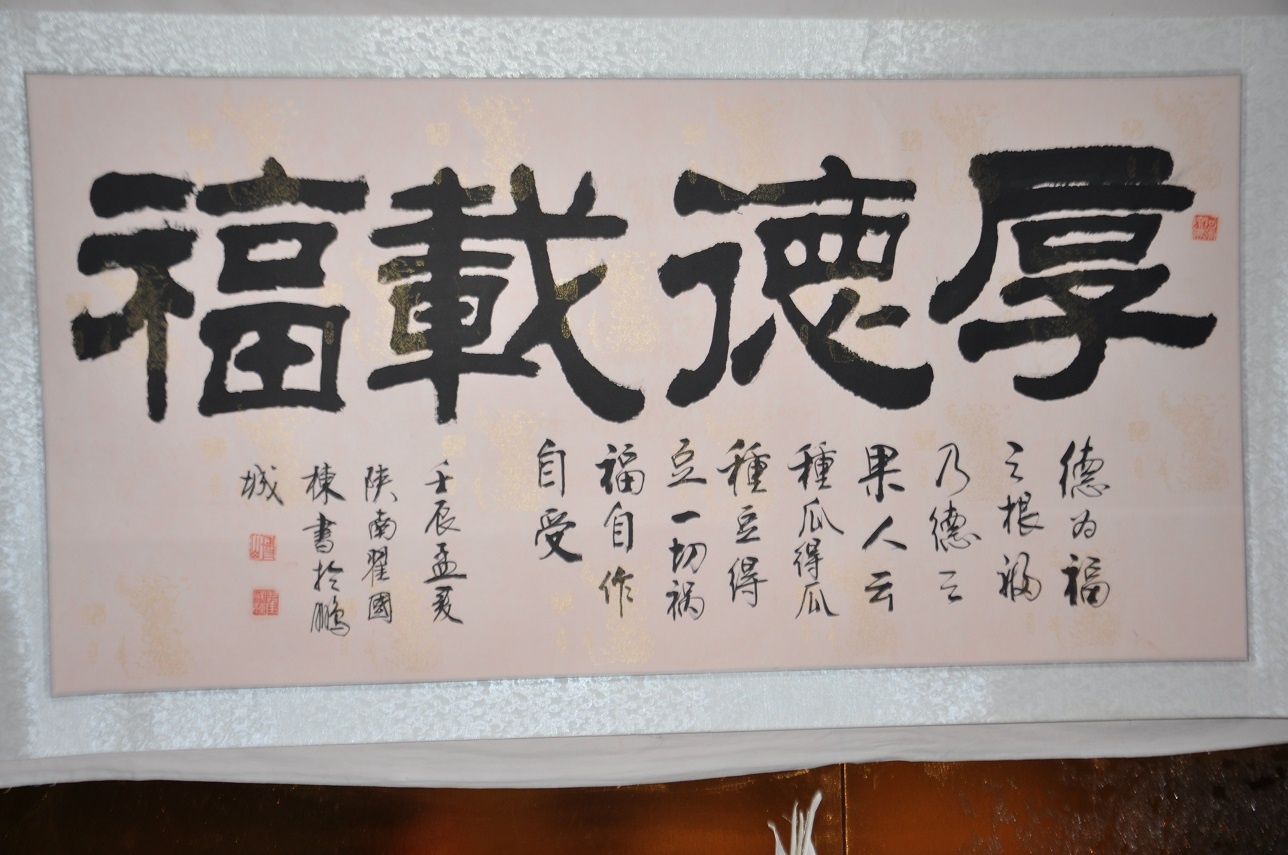 厚德載福
德为福
之根福
乃德之
果人云
種瓜得瓜
種豆得
豆一切祸
福自作
自受
壬辰孟夏
陕南翟國
棟書於鵬
城